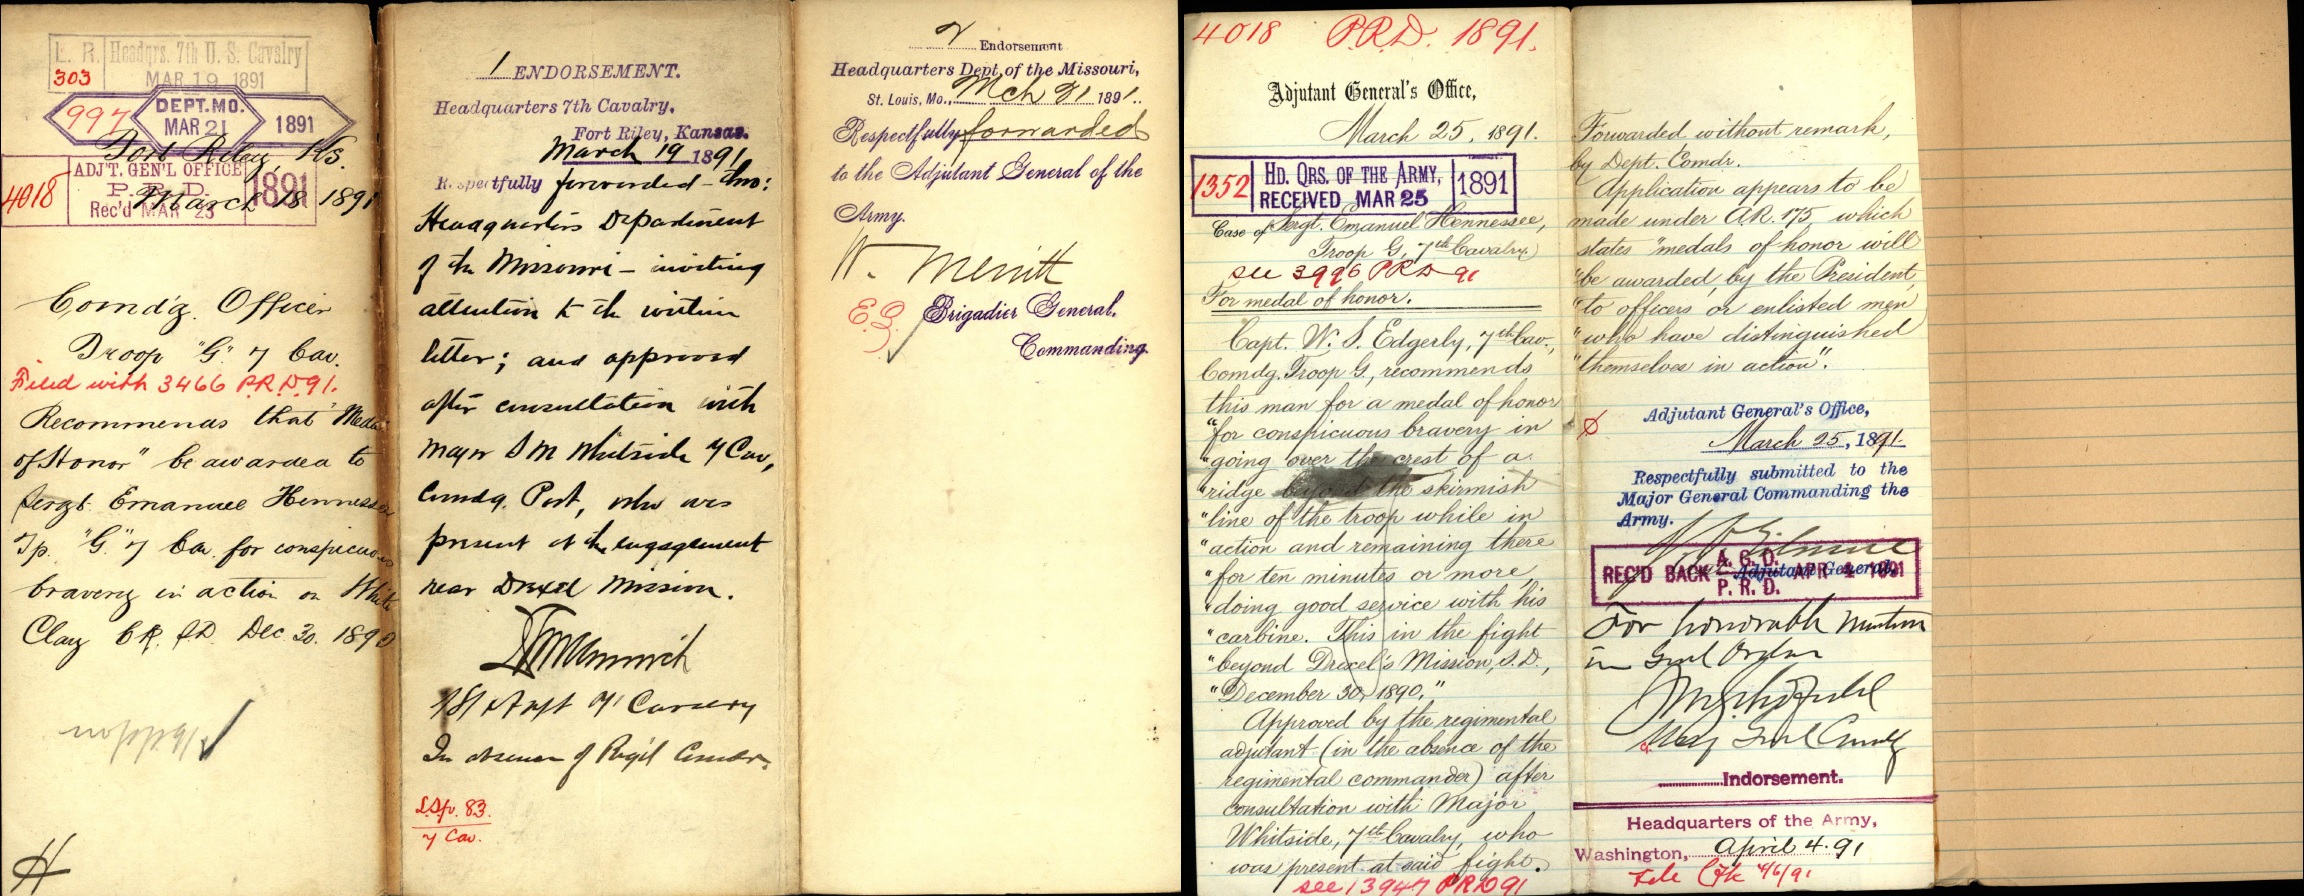 L. R. Headqrs. 7th U. S. Cavalry
303 MAR 19 1891
997 DEPT. MO. MAR 21 1891
Fort Riley Ks.
4018 ADJ'T. GEN'L OFFICE P. R. D. Rec'd MAR 23 1891
March 18 1891
Comd'g. Officer
Troop "G" 7 Cav.
Filed with 3466 P.R.D. 91.
Recommends that "Medal
of Honor" be awarded to
Sergt. Emanuel Hennessee
Tp. "G" 7 Cav. for conspicuous
bravery in action on White
Clay Ck. S.D. Dec. 30. 1890
H
1 ENDORSEMENT.
Headquarters 7th Cavalry,
Fort Riley, Kansas.
March 19 1891
Respectfully forwarded – thro:
Headquarters Department
of the Missouri – inviting
attention to the within
letter; and approved
after consultation with
Major S M Whitside 7 Cav,
Comdg. Post, who was
present at the engagement
near Drexel Mission.
1st Lieut 7 Cavalry
In absence of Reg'l Comdr.
83.
7 Cav.
2 Endorsement
Headquarters Dept. of the Missouri,
St. Louis, Mo., Mch 21 1891.
Respectfully forwarded
to the Adjutant General of the
Army.
W. Merritt
Brigadier General,
Commanding.
4018 P.R.D. 1891.
Adjutant General's Office,
March 25, 1891.
1352 HD. QRS. OF THE ARMY, RECEIVED MAR 25 1891
Case of Sergt. Emanuel Hennessee,
Troop G, 7th Cavalry.
see 3996 PRD 91
For medal of honor.
Capt. W. S. Edgerly, 7th Cav.,
Comdg. Troop G., recommends
this man for a medal of honor
"for conspicuous bravery in
"going over the crest of a
"ridge beyond the skirmish
"line of the troop while in
"action and remaining there
"for ten minutes or more
"doing good service with his
"carbine. This in the fight
"beyond Drexel's Mission, S.D.,
"December 30, 1890."
Approved by the regimental
adjutant (in the absence of the
regimental commander) after
consultation with Major
Whitside, 7th Cavalry, who
was present at said fight.
see 13947 PRD 91
Forwarded without remark,
by Dept. Comdr.
Application appears to be
made under A.R. 175, which
states "medals of honor will
"be awarded, by the President,
"to officers or enlisted men
"who have distinguished
"themselves in action".
Adjutant General's Office,
March 25, 1891
Respectfully submitted to the
Major General Commanding the
Army.
Adjutant General.
REC'D BACK A. G. O. P. R. D. APR 4 1891
For honorable mention
in Genl Orders
J M Schofield
Maj Genl Comdg
Indorsement.
Headquarters of the Army,
Washington, April 4. 91
File 4/6/91